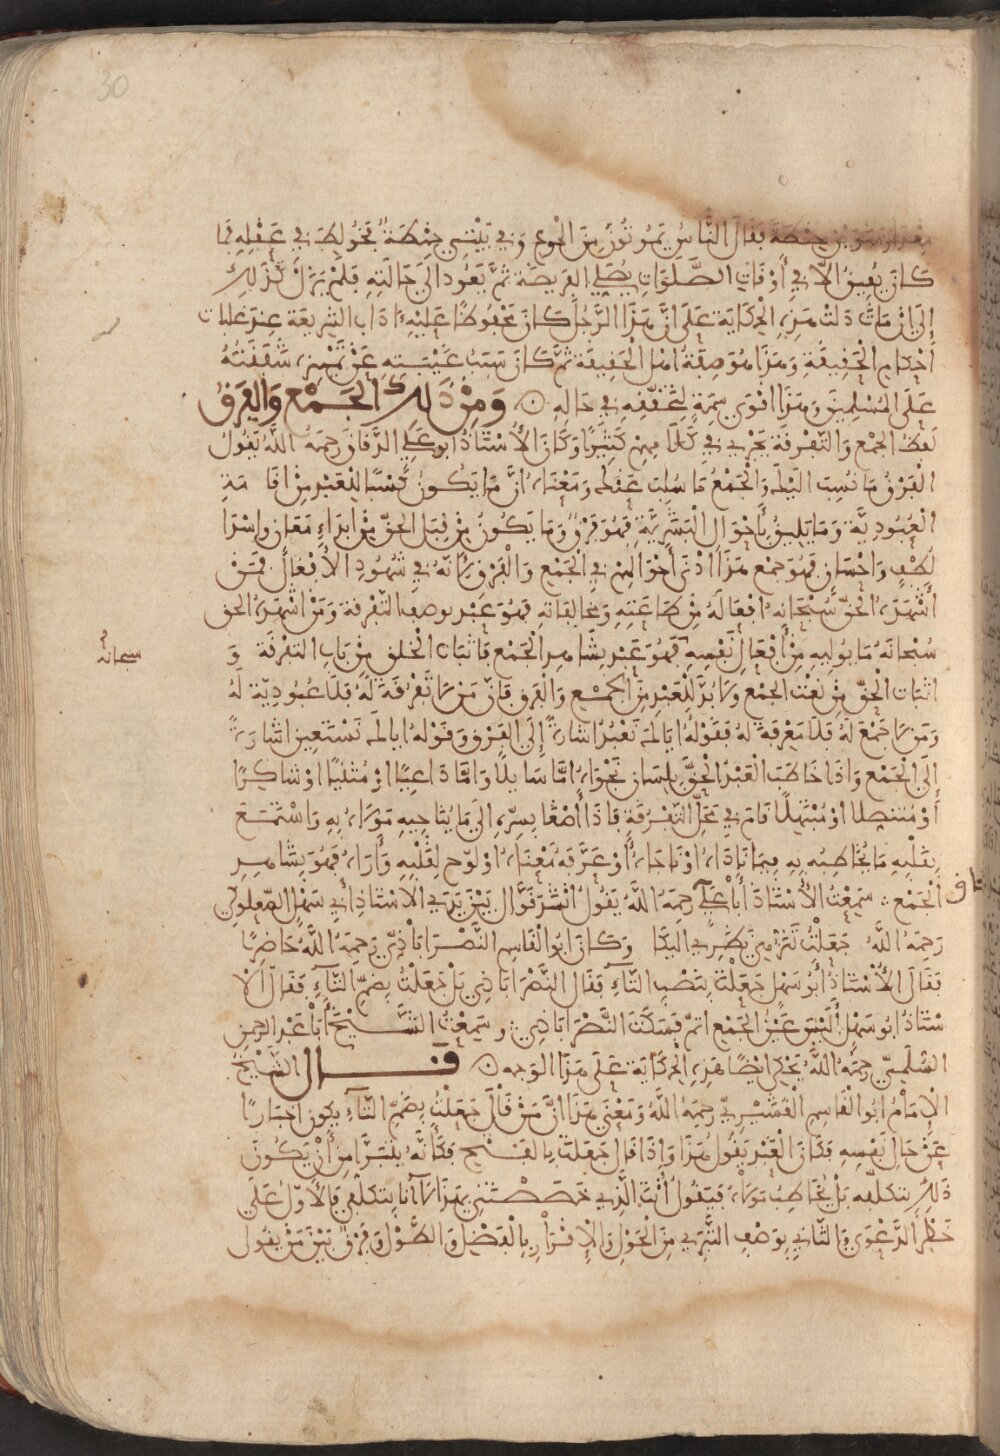 30
مقدار منوين حنطة فقال الناس يموتون من الجوع وفي بيتي حنطة فخولط في عقله فما
كان يفيق إلا في أوقات الصلوات يصلي الفريضة ثم يعود إلى حالته فلم يزل كذلك
إلى أن مات دلت هذه الحكاية على أن هذا الرجل كان محفوظا عليه ءاداب الشريعة عند غلبات
أحكام الحقيقة وهذا هو صفة أهل الحقيقة ثم كان سبب غيبته عن تمييزه شفقته
على المسلمين وهذا أقوى سمة لتحققه في حاله ومن ذلك الجمع والفرق
لفظ الجمع والتفرقة يجري في كلامهم كثيرا وكان الأستاذ أبو علي الدقاق رحمه الله يقول
الفرق ما نسب إليك والجمع ما سلب عنك ومعناه أن ما يكون كسبا للعبد من إقامة
العبودية وما يليق بأحوال البشرية فهو فرق وما يكون من قبل الحق من إبداء معان وإسدا
لطف وإحسان فهو جمع هذا أدنى أحوالهم في الجمع والفرق لأنه في شهود الأفعال فمن
أشهده الحق سبحانه أفعاله من طاعته ومخالفاته فهو عبد بوصف التفرقة ومن أشهده الحق
سبحانه ما يوليه من أفعال نفسه فهو عبد بشاهد الجمع فإثبات الخلق من باب التفرقة و
سبحانه
إثبات الحق من نعت الجمع ولا بد للعبد من الجمع والفرق فإن من لا تفرقة له فلا عبودية له
ومن لا جمع له فلا معرفة له فقوله إياك نعبد إشارة إلى الفرق وقوله إياك نستعين إشارة
إلى الجمع وإذا خاطب العبد الحق بلسان نجواه إما سايلا وإما داعيا أو مثنيا أو شاكرا
أو متنصلا أو مبتهلا قام في محل التفرقة فإذا أصغا بسره إلى ما يناجيه مولاه به واستمع
بقلبه ما يخاطبه به فيما ناداه أو ناجاه أو عرفه معناه أو لوح لقلبه وأراه فهو بشاهد
الجمع سمعت الأستاذ أبا علي رحمه الله يقول أنشد قوال بين يدي الأستاذ أبي سهل الصعلوكي
رحمه الله جعلت تنزهي نظري إليكا وكان أبو القاسم النصراباذي رحمه الله حاضرا
فقال الأستاذ أبو سهل جعلت بنصب التاء فقال النصراباذي بل جعلت بضم التاء فقال الأ
ستاذ أبو سهل أليس عين الجمع أتم فسكت النصراباذي وسمعت الشيخ أبا عبد الرحمن
السلمي رحمه الله يحكي أيضا هذه الحكاية على هذا الوجه قال الشيخ
الإمام أبو القاسم القشيري رحمه الله ومعنى هذا أن من قال جعلت بضم التاء يكون إخبارا
عن حال نفسه فكان العبد يقول هذا وإذا قال جعلت بالفتح فكأنه يتبرأ من أن يكون
ذلك بتكلفه بل يخاطب مولاه فيقول أنت الذي خصصتني بهذا لا أنا بتكلفي فالأول على
خطر الدعوى والثاني بوصف التبري من الحول والإقرار بالفضل والطول وفرق بين من يقول